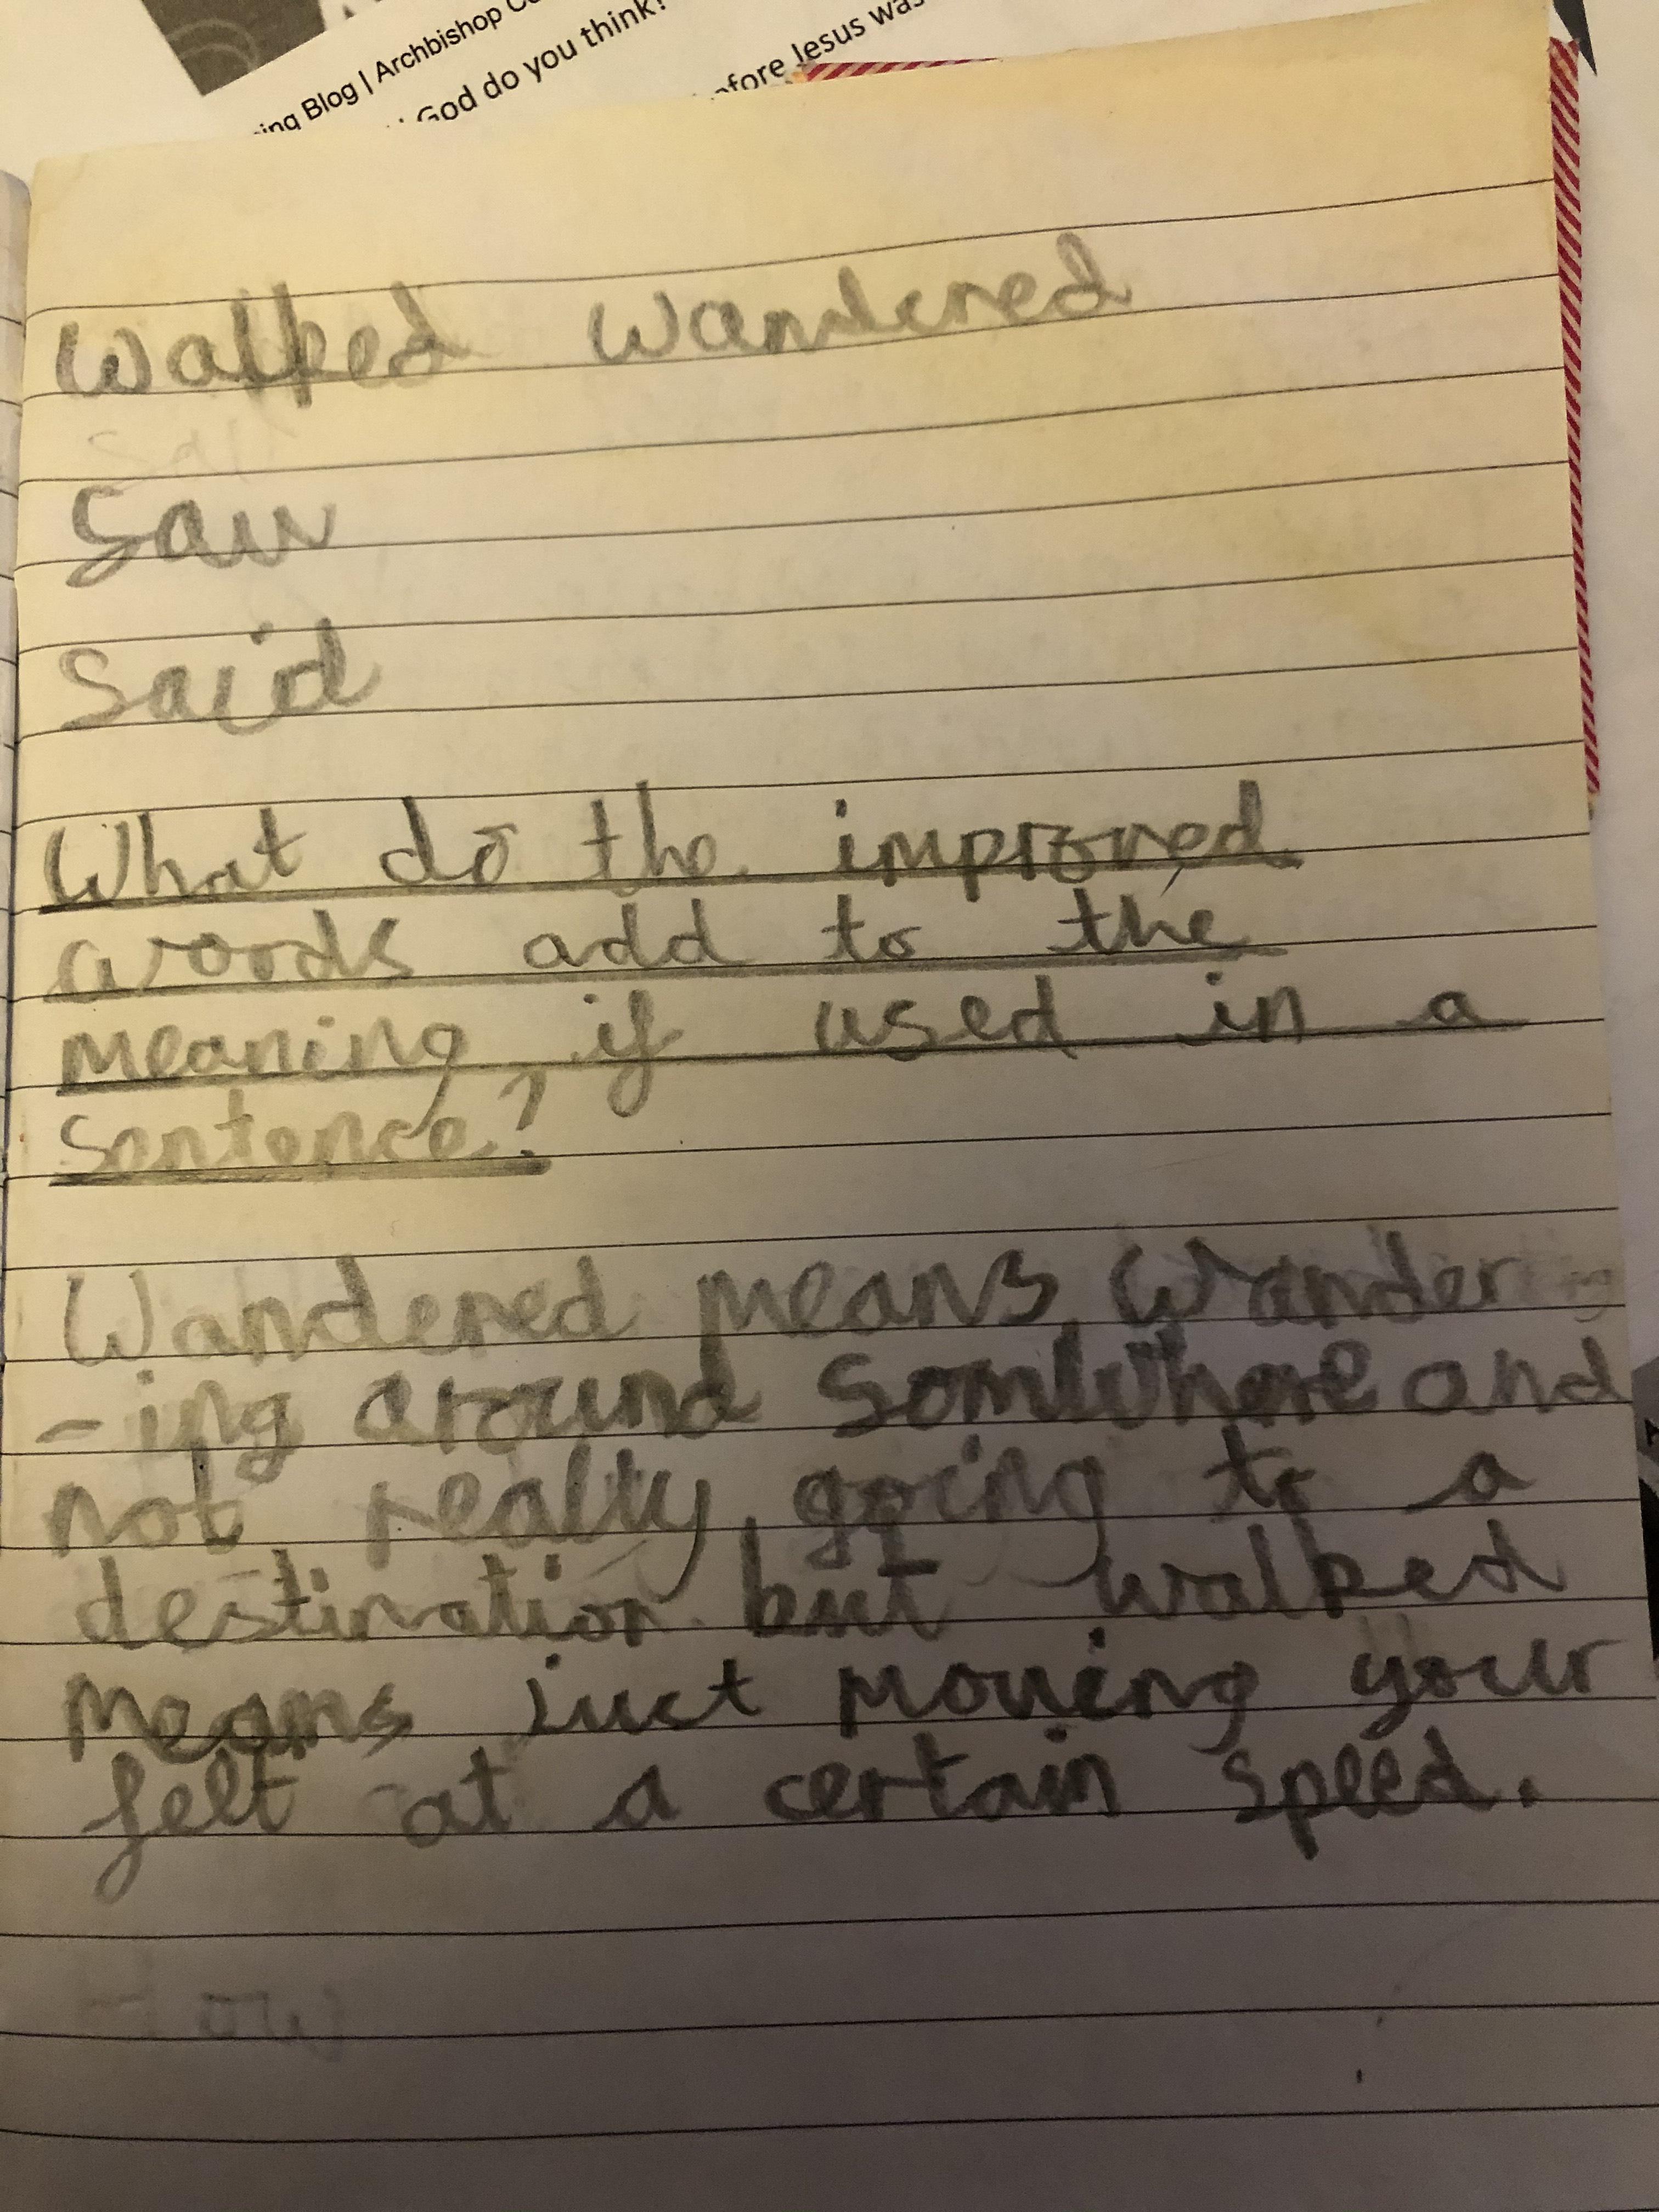 ing Blog | Archbishop
God do you think?
efore Jesus was
Walked Wandered
Saw
Said
What do the improved
words add to the
meaning if used in a
Sentence?
Wandered means Wander
-ing around somWhere and
not really going to a
destination but walked
means just moving your
felt at a certain speed.
How